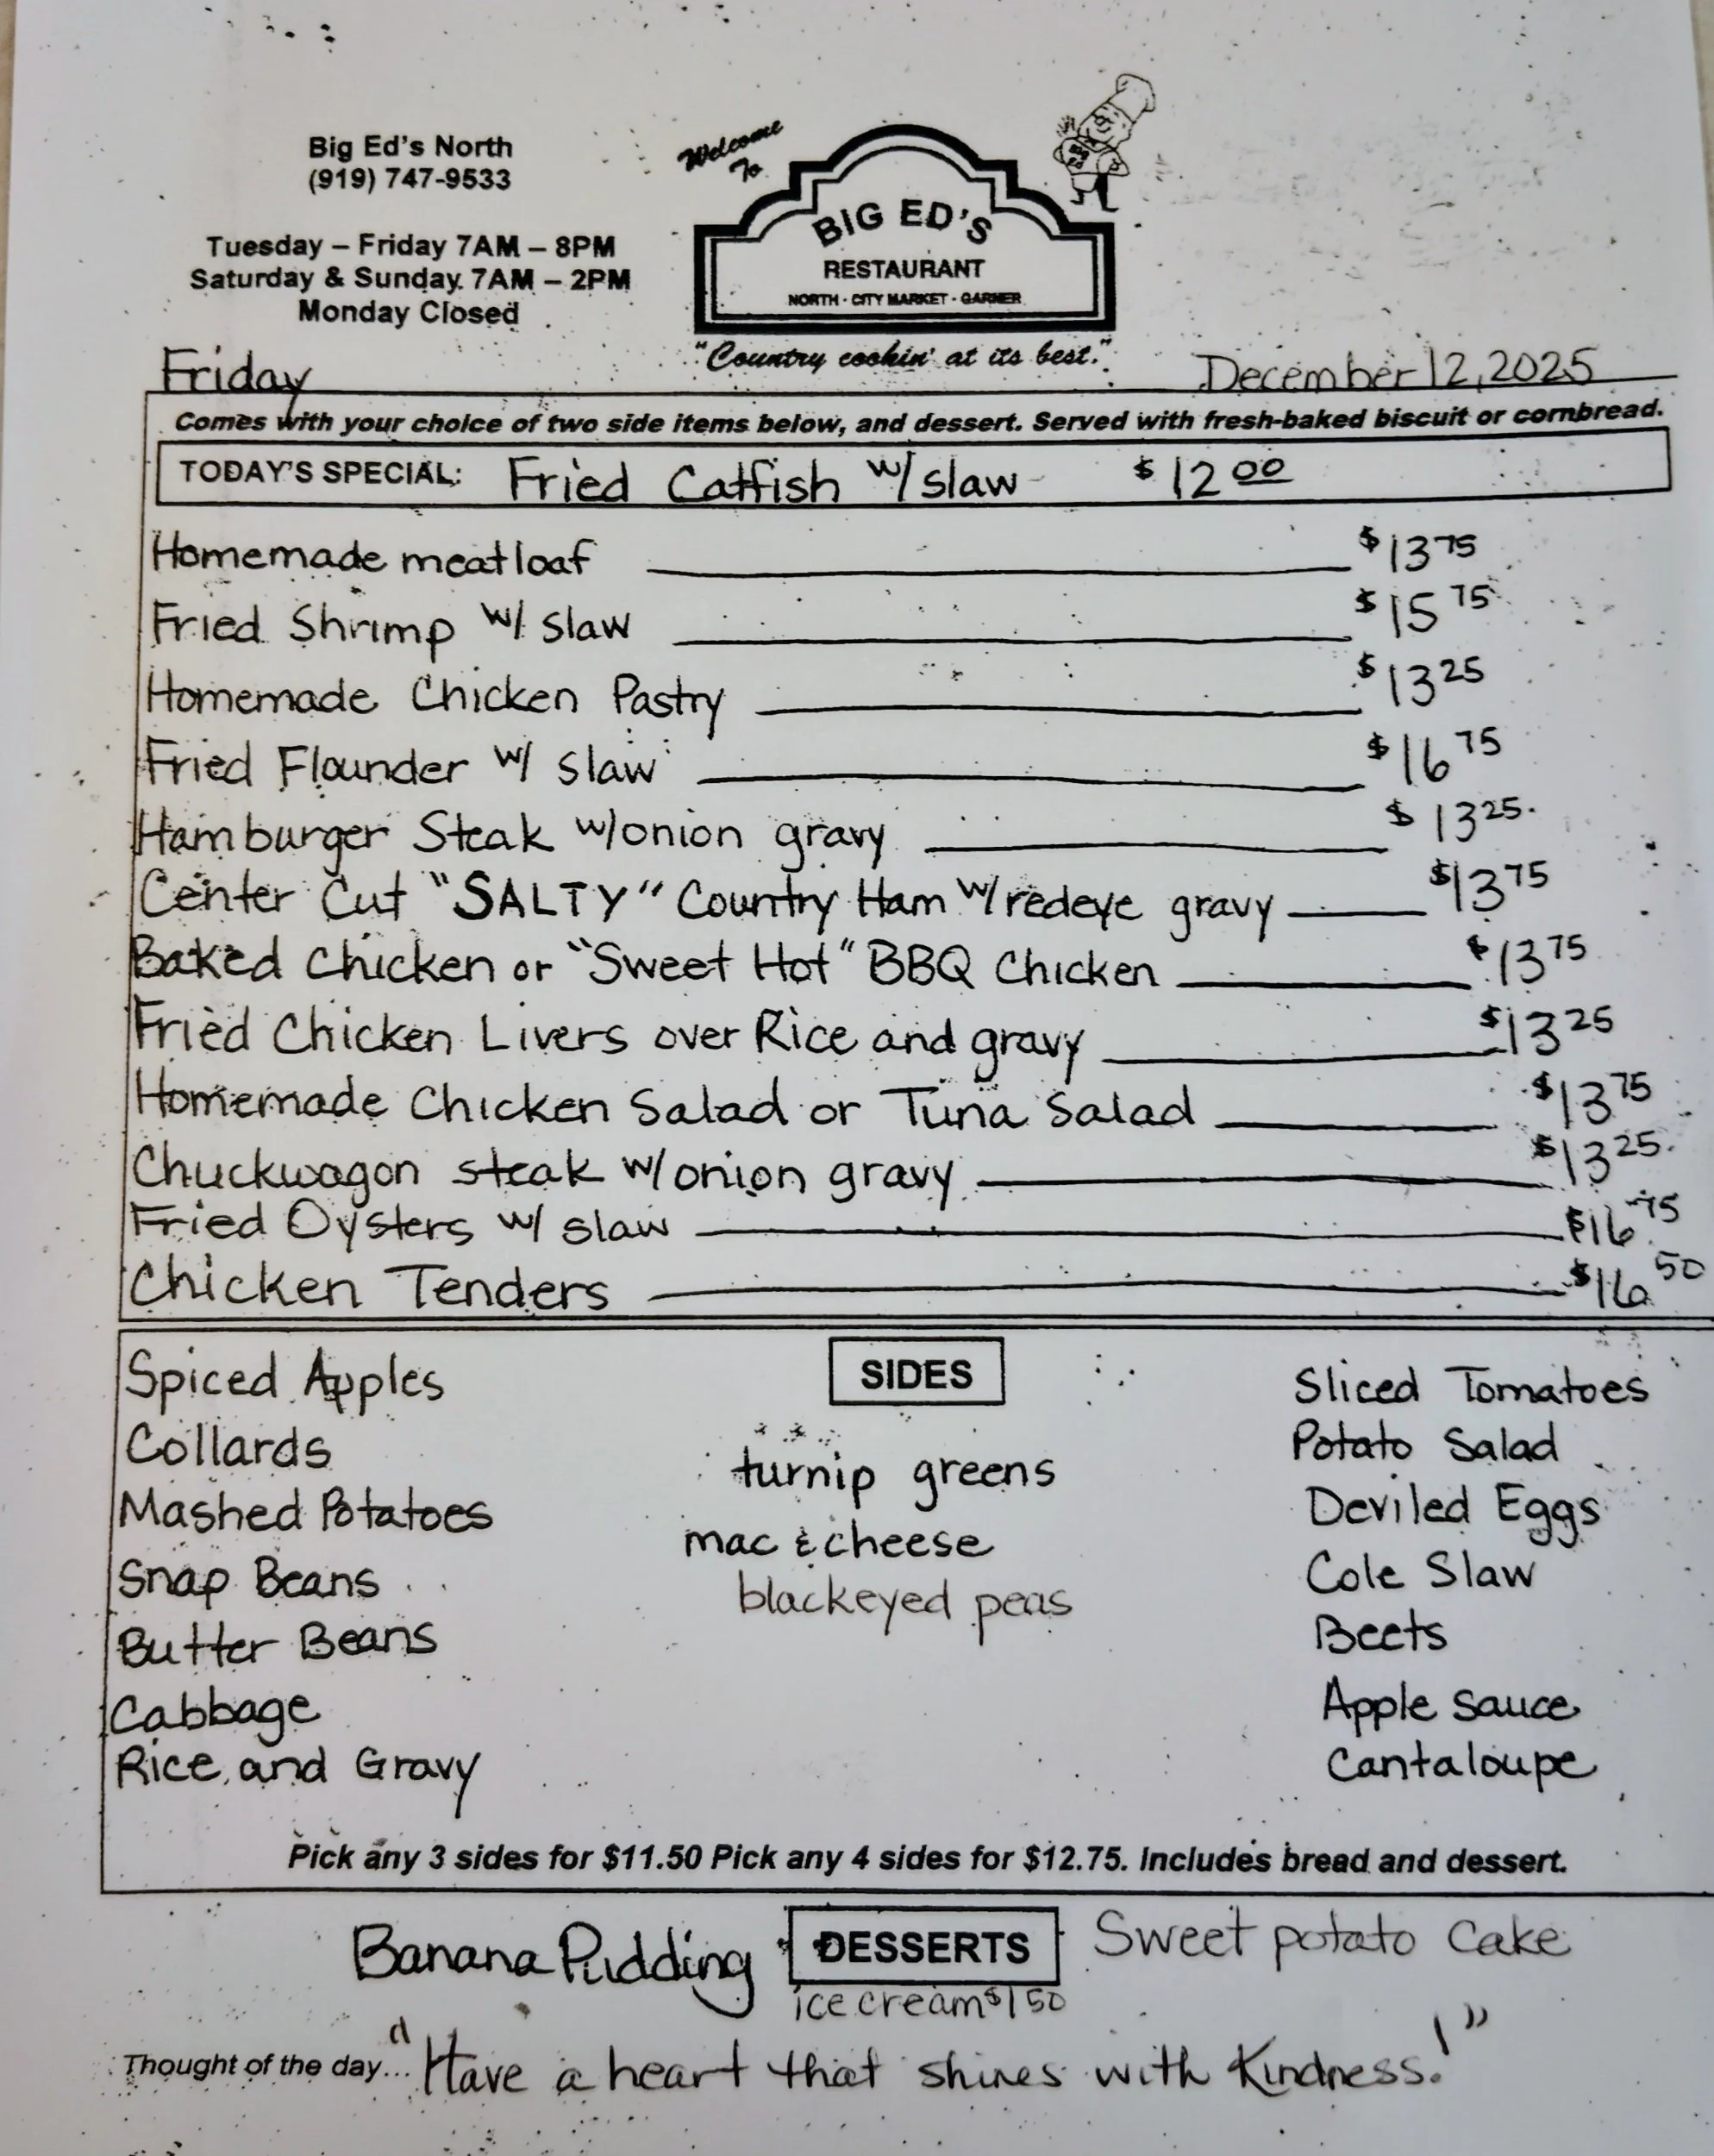 Big Ed's North
(919) 747-9533
Tuesday – Friday 7AM – 8PM
Saturday & Sunday 7AM – 2PM
Monday Closed
Welcome
To
BIG ED'S
RESTAURANT
NORTH · CITY MARKET · GARNER
"Country cookin' at its best."
Friday
December 12, 2025
Comes with your choice of two side items below, and dessert. Served with fresh-baked biscuit or cornbread.
TODAY'S SPECIAL: Fried Catfish w/ slaw $12 00
Homemade meatloaf $13 75
Fried Shrimp w/ slaw $15 75
Homemade Chicken Pastry $13 25
Fried Flounder w/ slaw $16 75
Hamburger Steak w/onion gravy $13 25
Center Cut "SALTY" Country Ham w/redeye gravy $13 75
Baked Chicken or "Sweet Hot" BBQ Chicken $13 75
Fried Chicken Livers over Rice and gravy $13 25
Homemade Chicken Salad or Tuna Salad $13 75
Chuckwagon steak w/onion gravy $13 25
Fried Oysters w/ slaw $16 75
Chicken Tenders $16 50
SIDES
Spiced Apples
Collards
Mashed Potatoes
Snap Beans
Butter Beans
Cabbage
Rice and Gravy
turnip greens
mac & cheese
blackeyed peas
Sliced Tomatoes
Potato Salad
Deviled Eggs
Cole Slaw
Beets
Apple sauce
Cantaloupe
Pick any 3 sides for $11.50 Pick any 4 sides for $12.75. Includes bread and dessert.
DESSERTS
Banana Pudding
Sweet potato Cake
ice cream $1 50
Thought of the day... "Have a heart that shines with Kindness!"